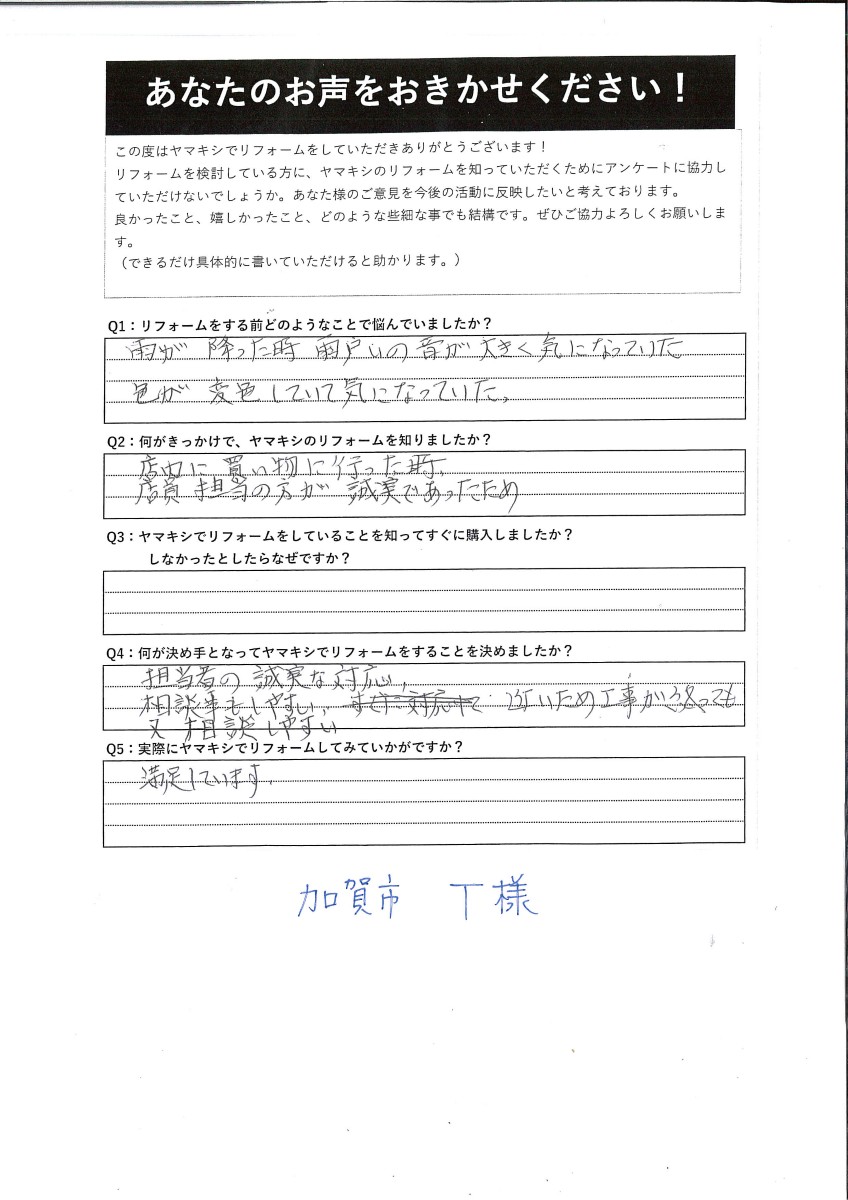 あなたのお声をおきかせください！
この度はヤマキシでリフォームをしていただきありがとうございます！
リフォームを検討している方に、ヤマキシのリフォームを知っていただくためにアンケートに協力し
ていただけないでしょうか。あなた様のご意見を今後の活動に反映したいと考えております。
良かったこと、嬉しかったこと、どのような些細な事でも結構です。ぜひご協力よろしくお願いしま
す。
（できるだけ具体的に書いていただけると助かります。）
Q1：リフォームをする前どのようなことで悩んでいましたか？
雨が 降った時 雨戸いの 音が 大きく 気になっていた
色が 変色していて気になっていた。
Q2：何がきっかけで、ヤマキシのリフォームを知りましたか？
店内に 買い物に行った時、
店員 担当の方が 誠実であったため
Q3：ヤマキシでリフォームをしていることを知ってすぐに購入しましたか？
しなかったとしたらなぜですか？
Q4：何が決め手となってヤマキシでリフォームをすることを決めましたか？
担当者の 誠実な対応、
相談事もしやすい、 近いため工事が終っても
又 相談しやすい
Q5：実際にヤマキシでリフォームしてみていかがですか？
満足しています。
加賀市 T様